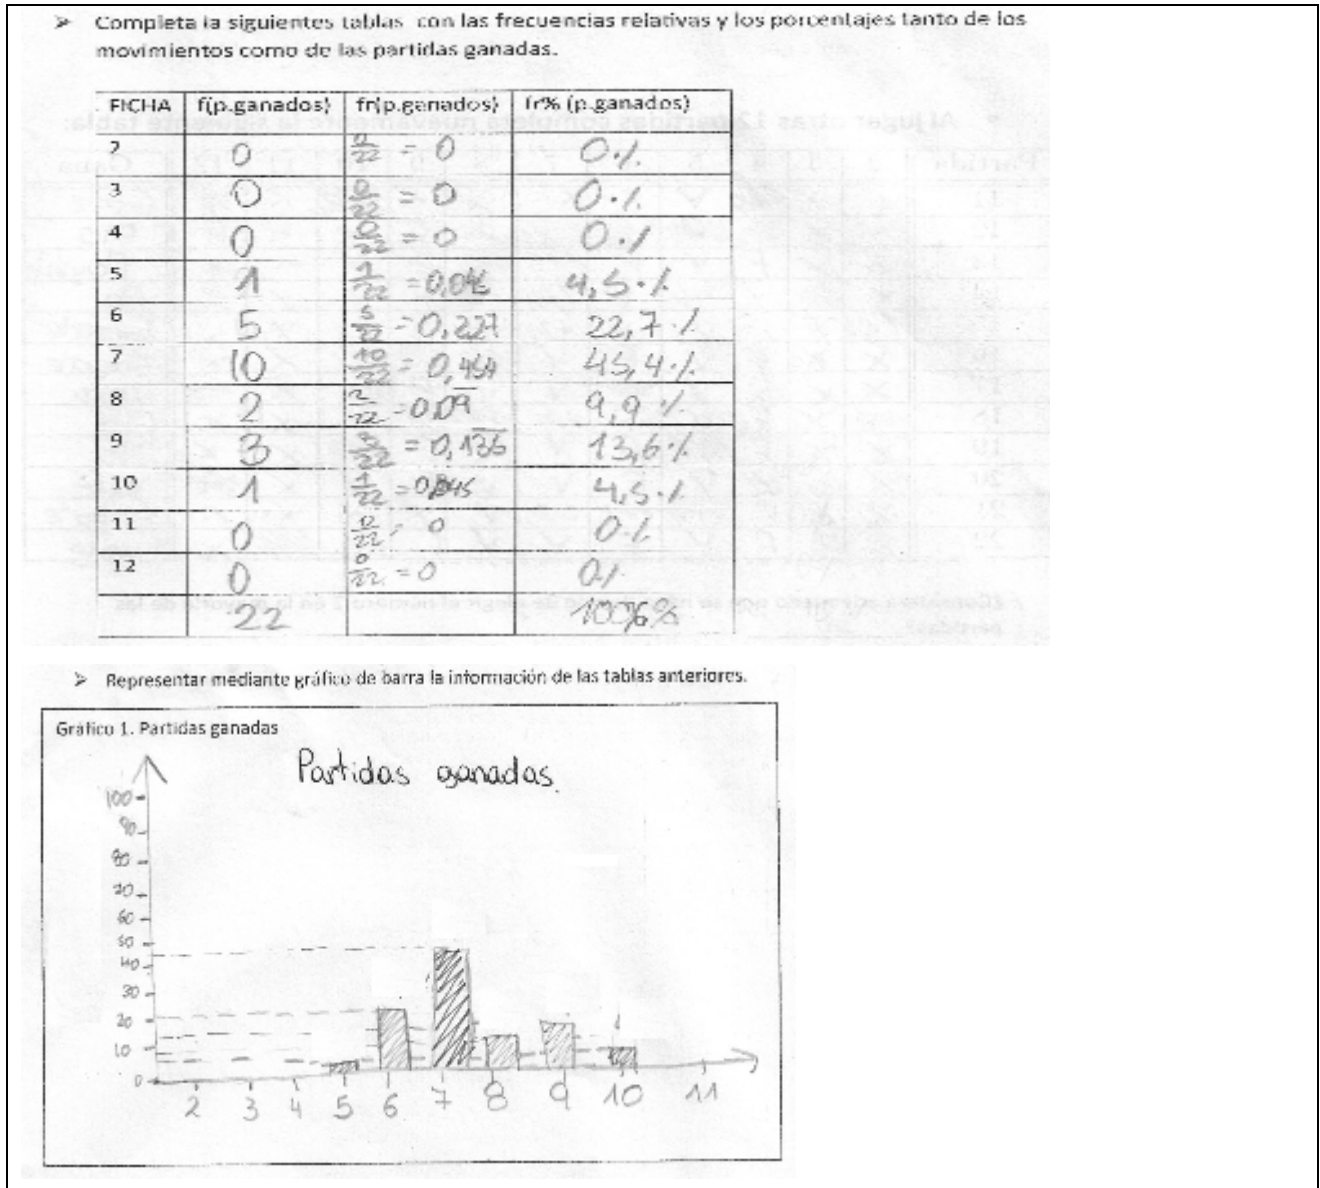 ➢ Completa la siguientes tablas con las frecuencias relativas y los porcentajes tanto de los
movimientos como de las partidas ganadas.
FICHA f(p.ganados) fr(p.ganados) fr% (p.ganados)
2 0 0/22 = 0 0%
3 0 0/22 = 0 0%
4 0 0/22 = 0 0%
5 1 1/22 = 0,045 4,5%
6 5 5/22 = 0,227 22,7%
7 10 10/22 = 0,454 45,4%
8 2 2/22 = 0,09 9,9%
9 3 3/22 = 0,136 13,6%
10 1 1/22 = 0,045 4,5%
11 0 0/22 = 0 0%
12 0 0/22 = 0 0%
22 100%
➢ Representar mediante gráfico de barra la información de las tablas anteriores.
Gráfico 1. Partidas ganadas
Partidas ganadas
100
90
80
70
60
50
40
30
20
10
0
2 3 4 5 6 7 8 9 10 11